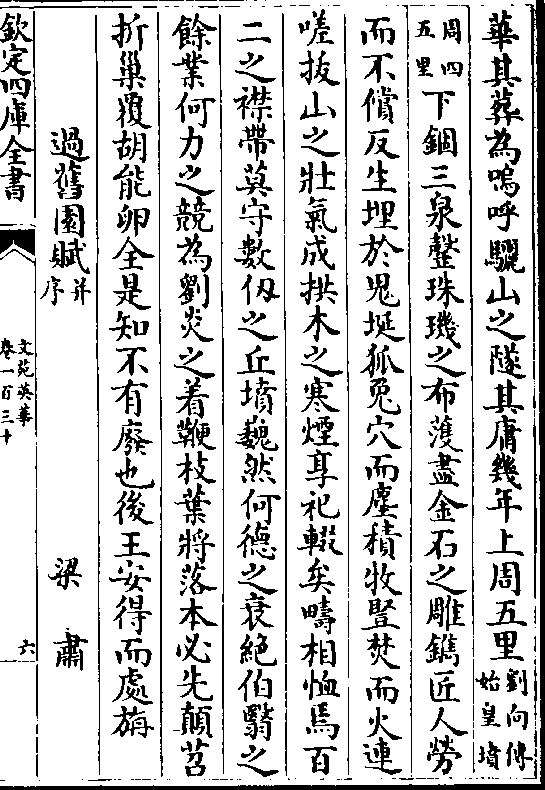 華其葬為嗚呼驪山之隧其庸幾年上周五里劉向傳始皇墳
周四五里下錮三泉盭珠璣之布濩盡金石之雕鐫匠人勞
而不償反生埋於鬼埏狐兎穴而塵積牧豎焚而火連
嗟拔山之壯氣成拱木之寒煙享祀輟矣疇相恤焉百
二之襟帶莫守數仭之丘墳巍然何德之衰絶伯翳之
餘業何力之競為劉炎之着鞭枝葉將落本必先顛苕
折巢覆胡能卵全是知不有廢也後王安得而處旃
過舊園賦并序 梁肅
欽定四庫全書
文苑英華
卷一百三十
六